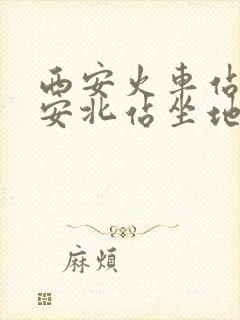 西安火車佔
安北佔坐地
麻煩